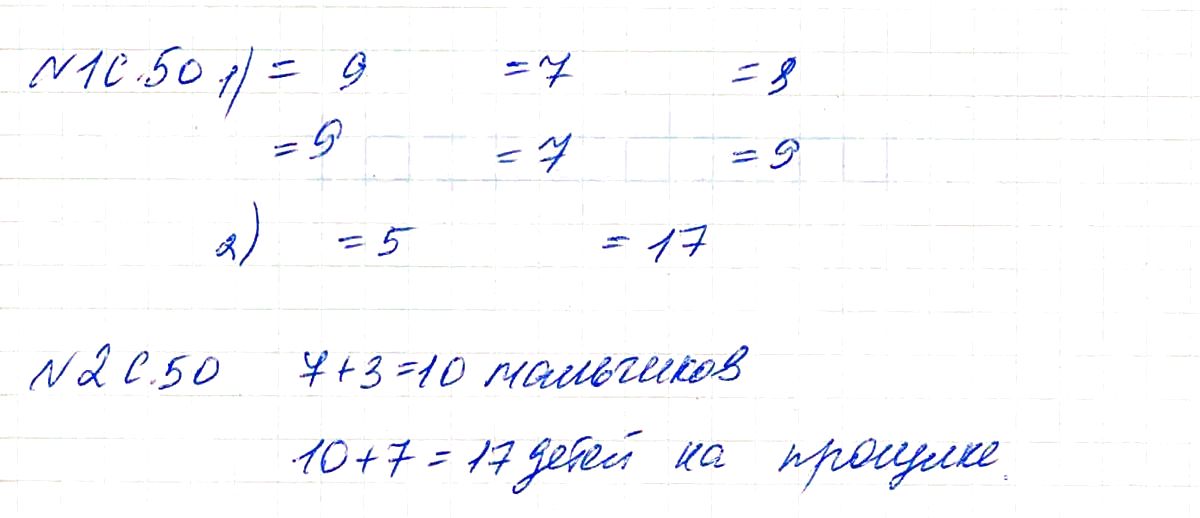 №1 с.50 1) = 9 = 7 = 8
= 9 = 7 = 9
2) = 5 = 17
№2 с.50 7+3=10 мальчиков
10+7=17 детей на прогулке.